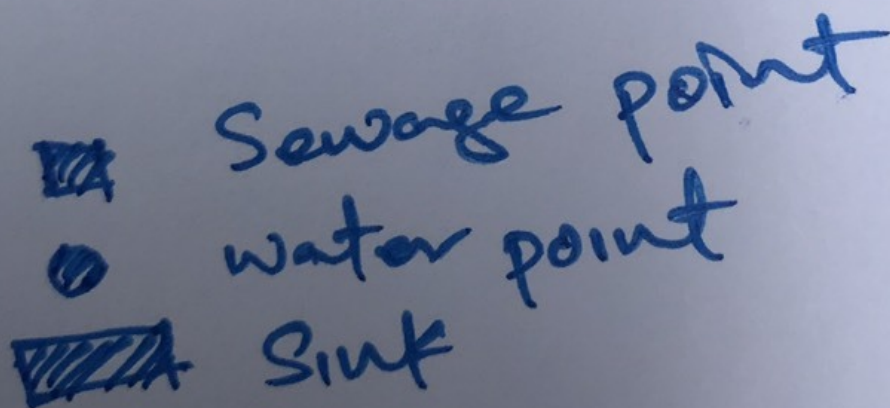 Sewage point
water point
Sink